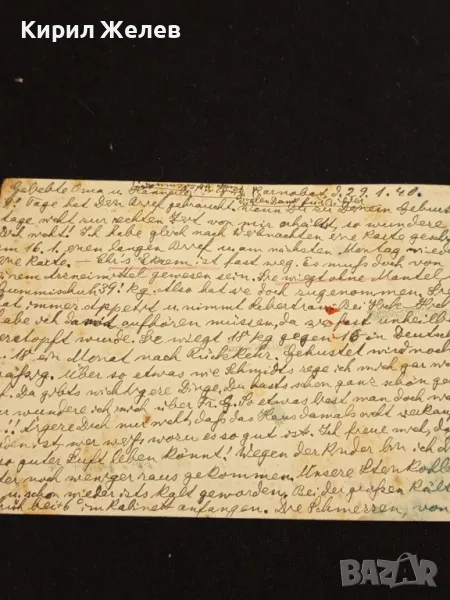 Кирил Желев
Geliebte Oma u. Karnobat, d. 29.1.40.
9! Tage hat Dein Brief gebraucht. Wenn Du zu Deinem Geburts
tage nicht zur rechten Zeit von mir erhältst, so wundere
Dich nicht! Ich habe gleich nach Weihnachten eine Karte geschr
am 16.1. einen langen Brief u. am nächsten Montag wieder
eine Karte. – Elvis Ekzem ist fast weg. Es muß doch von
einem Arzneimittel gewesen sein. Sie wiegt ohne Mantel
Gummischuh 39! kg. Also hat sie doch zugenommen. Sie
hat immer Appetit u. nimmt Lebertran. Bei
habe ich damit aufhören müssen, da fast unheilb
verstopft wurde. Sie wiegt 18 kg gegen 16 in Deutsch
18 ein Monat nach Rückkehr. Gehustet wird noch
Über so etwas wie Schmidts rege ich mich gar
. Da gibts nichtigere Dinge. Du hasts schon ganz schön
wundere ich mich über Fr. G. So etwas best man doch
!!! Ärgere Dich nur nicht, daß das Haus damals nicht verkau
ist, wer weiß, wozu es so gut ist. Ich freue mich, da
so guter Luft leben könnt! Wegen der Kinder bin ich
noch weniger raus gekommen. Unsere
schon wieder ists kalt geworden. Bei der großen Kält
bei 6° im Kabinett anfangen. Die Schmerzen, von
BAZAR
bg